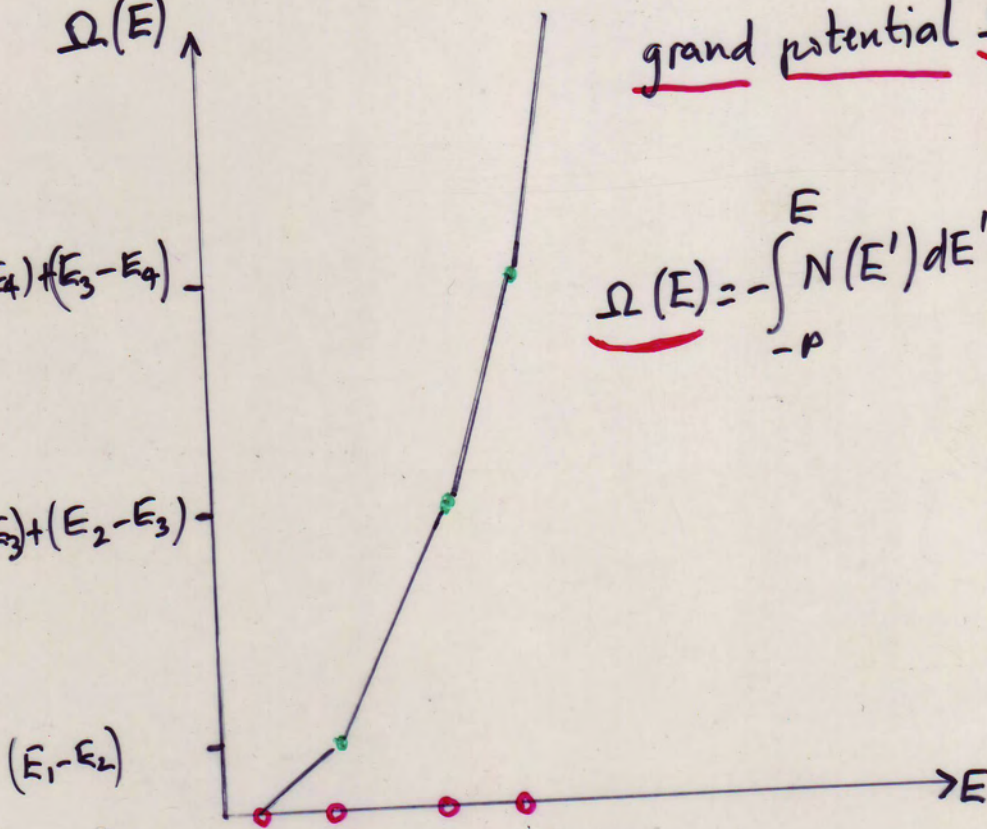 Ω(E)
grand potential
E₄)+(E₃-E₄)
Ω(E)=-∫N(E')dE'
E
E₃)+(E₂-E₃)
(E₁-E₂)
E